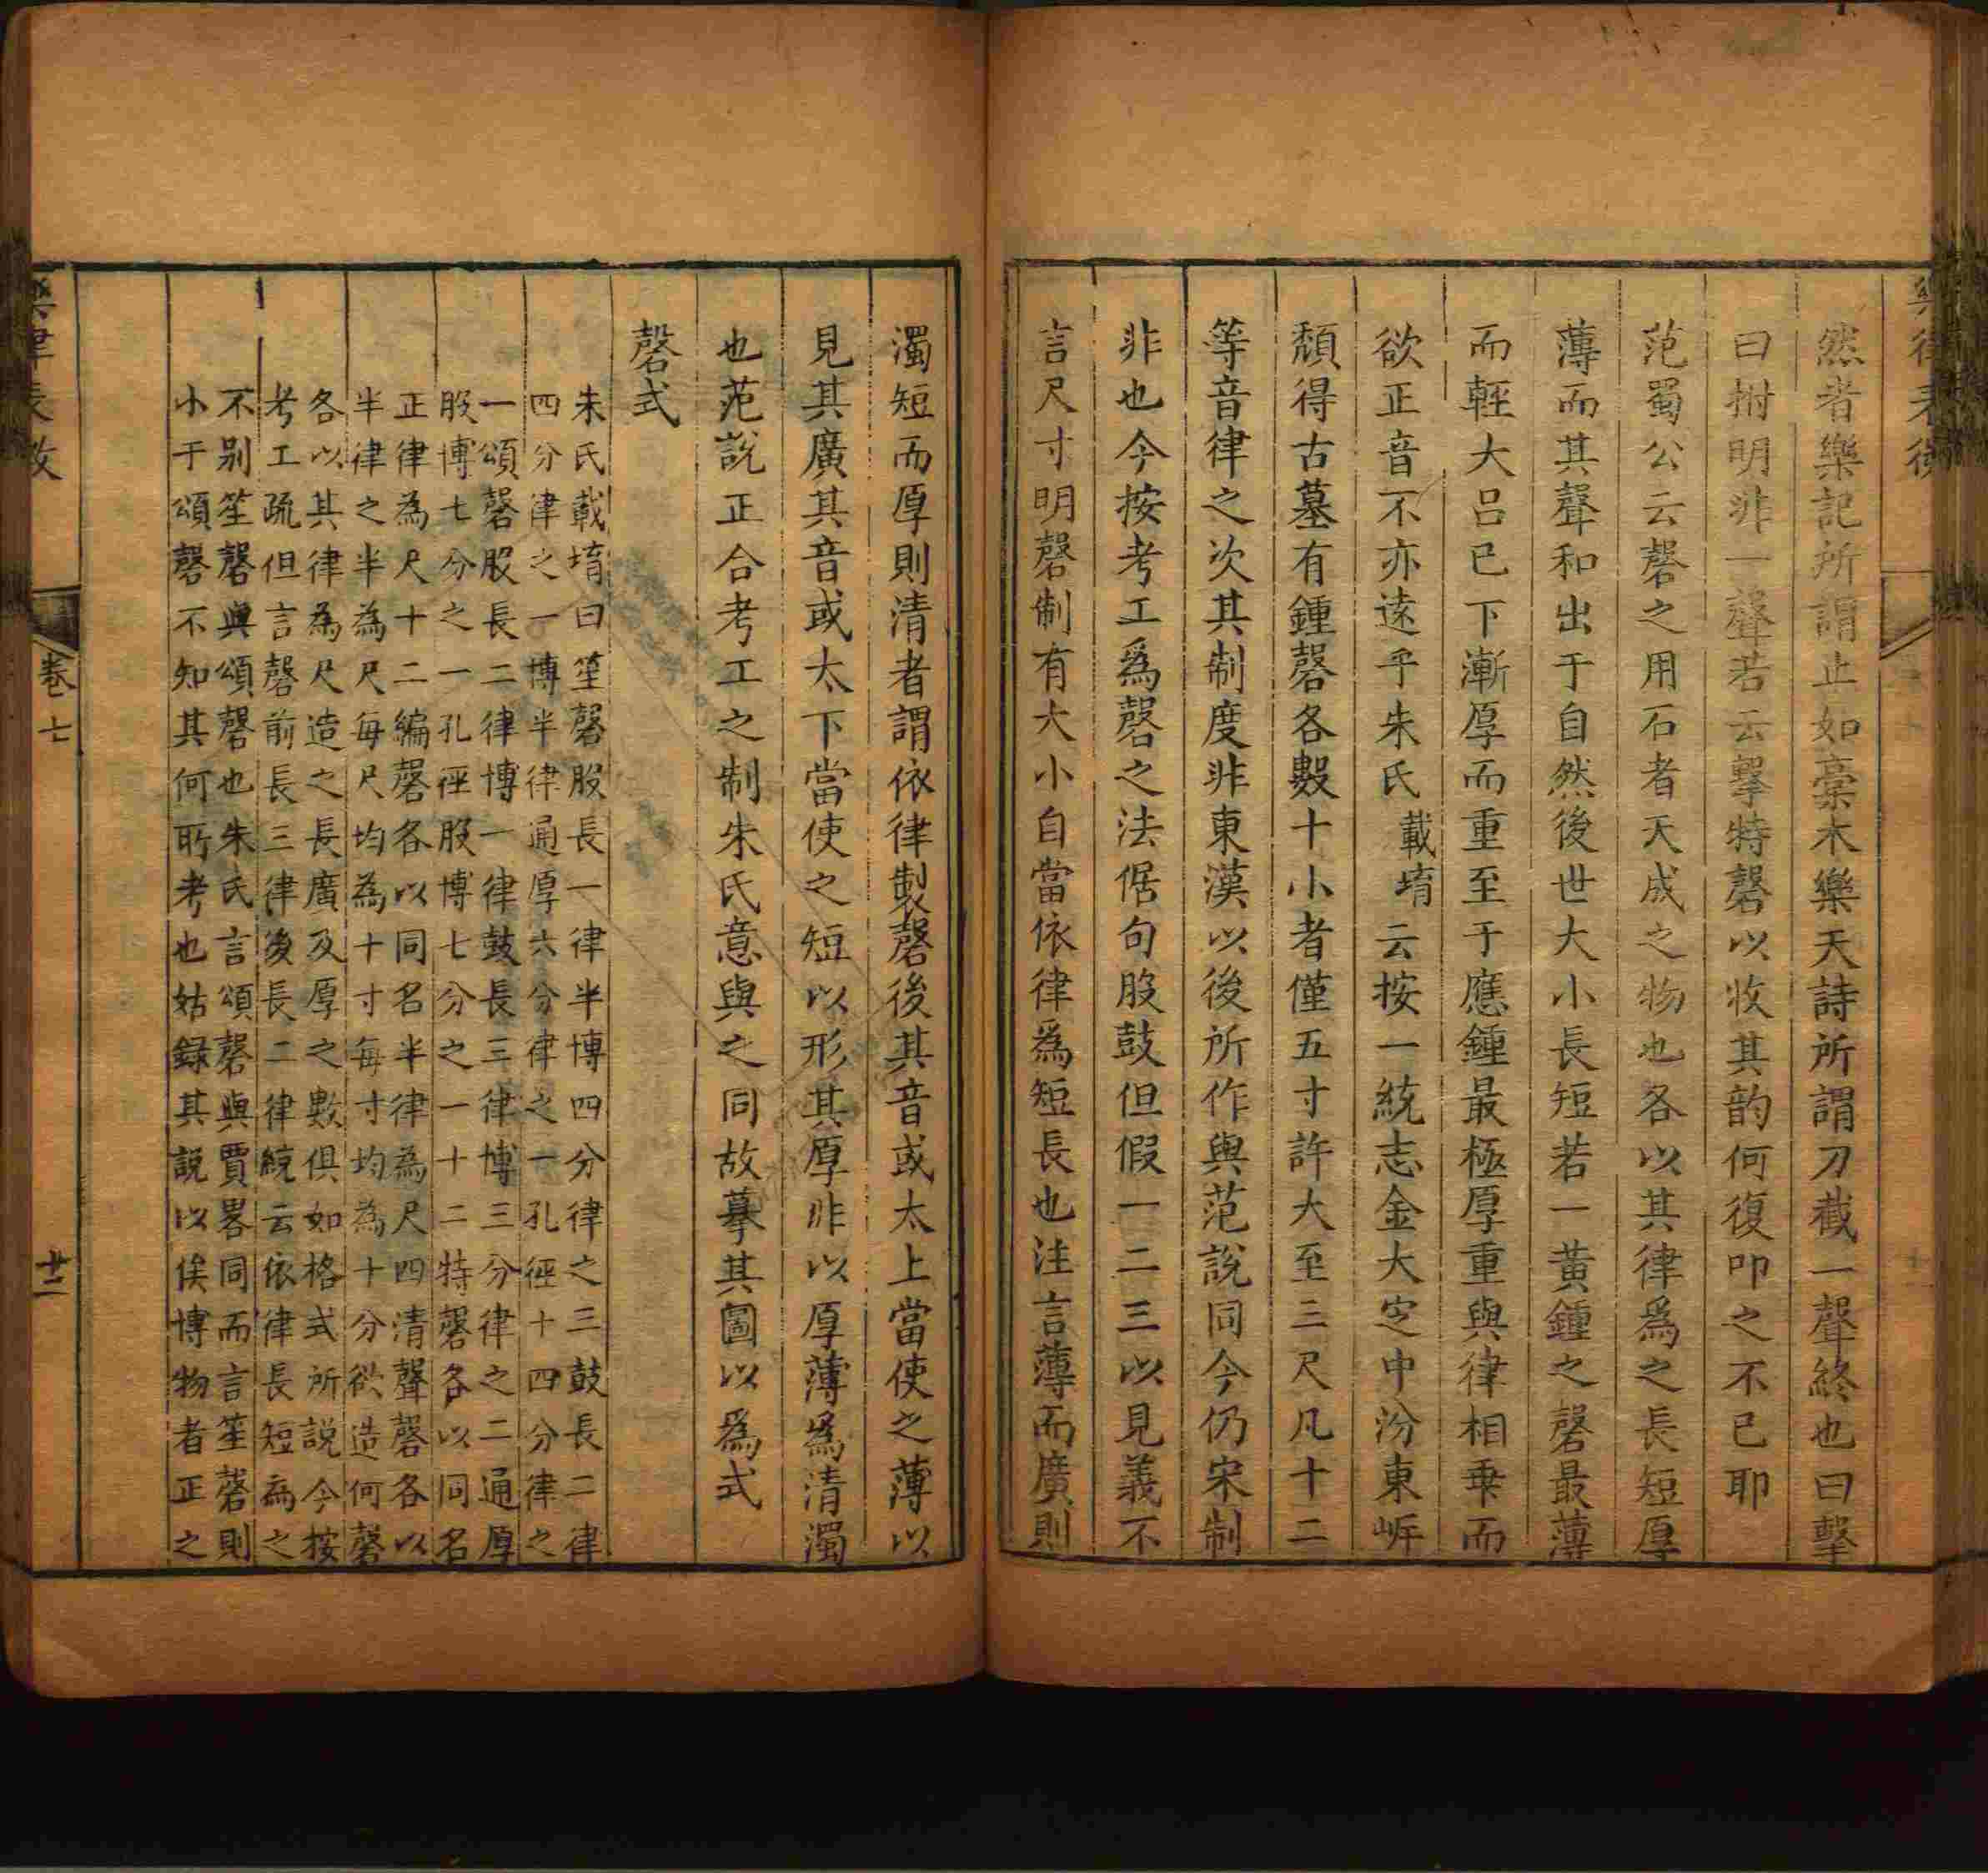 然者樂記所謂止如槀木樂天詩所謂刀截一聲終也曰擊
曰拊明非一聲若云擊特磬以收其韵何復叩之不已耶
范蜀公云磬之用石者天成之物也各以其律爲之長短厚
薄而其聲和出于自然後世大小長短若一黃鍾之磬最薄
而輕大呂已下漸厚而重至于應鍾最極厚重與律相乗而
欲正音不亦遠乎朱氏載堉云按一統志金大定中汾東岸
頹得古墓有鍾磬各數十小者僅五寸許大至三尺凡十二
等音律之次其制度非東漢以後所作與范說同今仍宋制
非也今按考工爲磬之法倨句股鼓但假一二三以見義不
言尺寸明磬制有大小自當依律爲短長也注言薄而廣則
濁短而厚則清者謂依律製磬後其音或太上當使之薄以
見其廣其音或太下當使之短以形其厚非以厚薄爲清濁
也范說正合考工之制朱氏意與之同故摹其圖以爲式
磬式
朱氏載堉曰笙磬股長一律半博四分律之三鼓長二律
四分律之一博半律通厚六分律之一孔徑十四分律之
一頌磬股長二律博一律鼓長三律博三分律之二通厚
股博七分之一孔徑股博七分之一十二特磬各以同名
正律為尺十二編磬各以同名半律為尺四清聲磬各以
半律之半為尺每尺均為十寸每寸均為十分欲造何磬
各以其律為尺造之長廣及厚之數俱如格式所說今按
考工疏但言磬前長三律後長二律統云依律長短為之
不別笙磬與頌磬也朱氏言頌磬與賈畧同而言笙磬則
小于頌磬不知其何所考也姑録其說以俟博物者正之
卷七
廿二